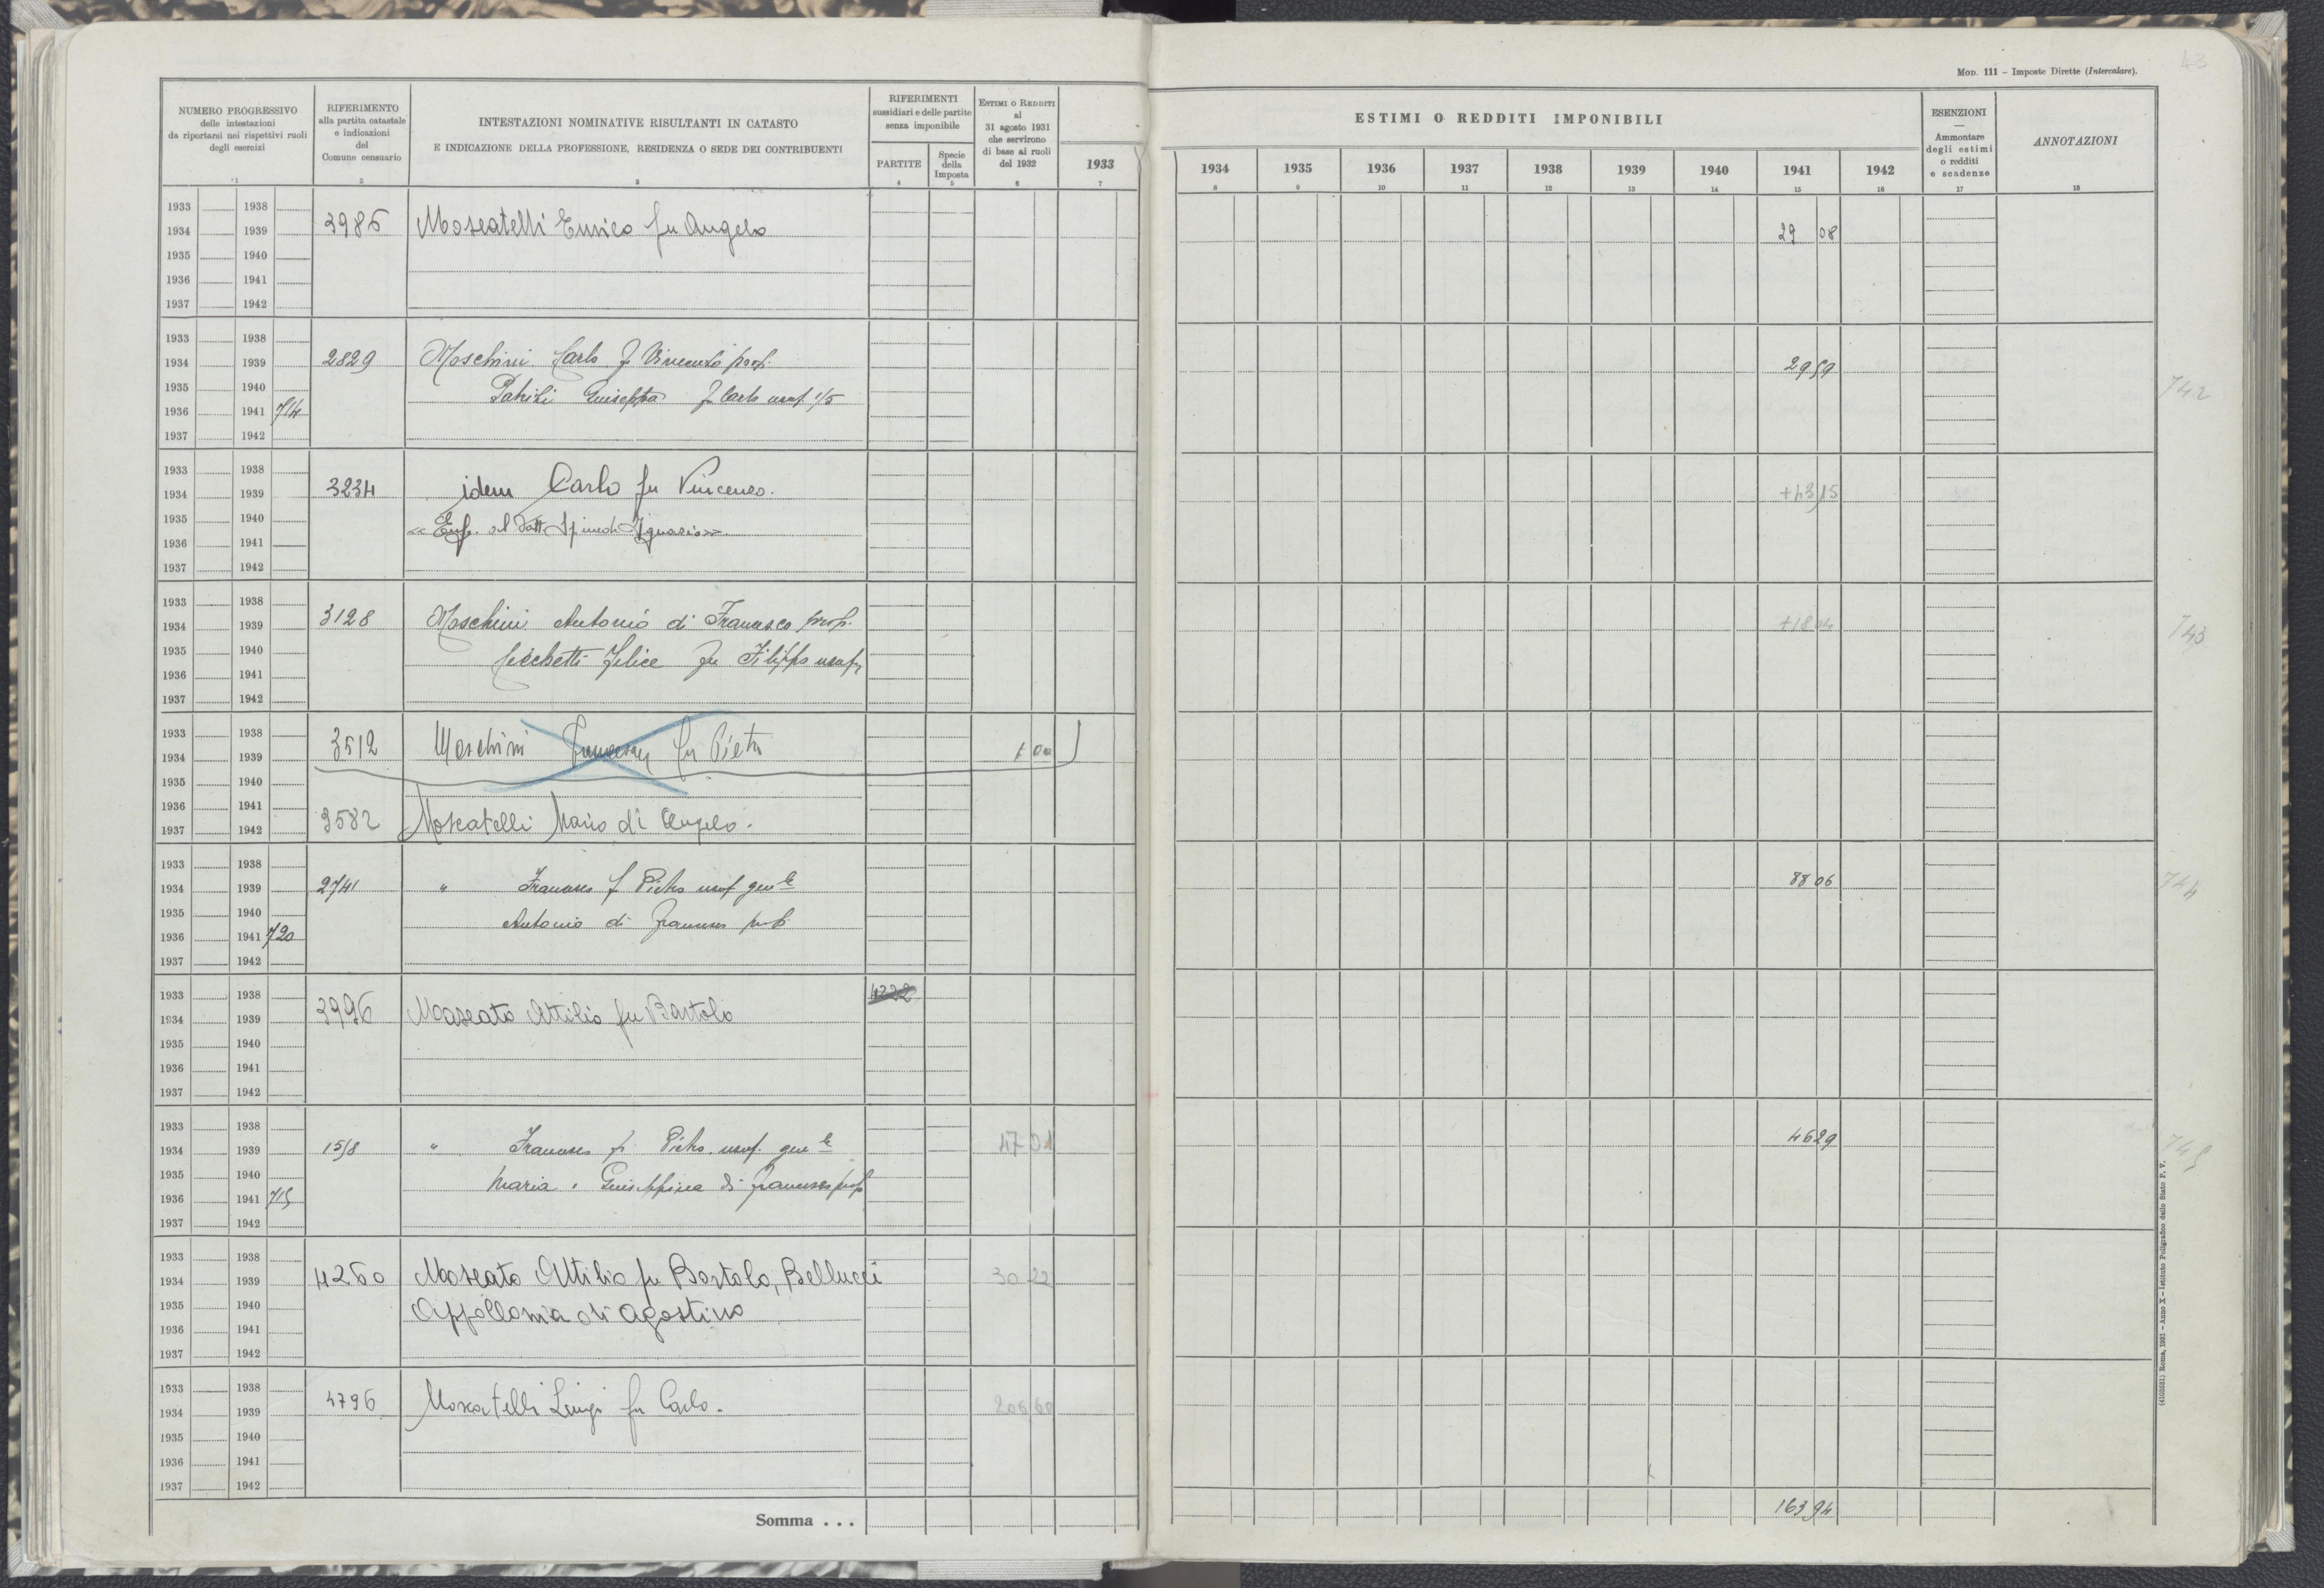 43
MOD. 111 – Imposte Dirette (Intercalare).
NUMERO PROGRESSIVO
delle intestazioni
da riportarsi nei rispettivi ruoli
degli esercizi
1
RIFERIMENTO
alla partita catastale
e indicazioni
del
Comune censuario
2
INTESTAZIONI NOMINATIVE RISULTANTI IN CATASTO
E INDICAZIONE DELLA PROFESSIONE, RESIDENZA O SEDE DEI CONTRIBUENTI
3
RIFERIMENTI
sussidiari e delle partite
senza imponibile
PARTITE
4
Specie
della
Imposta
5
ESTIMI O REDDITI
al
31 agosto 1931
che servirono
di base ai ruoli
del 1932
6
1933
7
ESTIMI O REDDITI IMPONIBILI
1934 1935 1936 1937 1938 1939 1940 1941 1942
8 9 10 11 12 13 14 15 16
ESENZIONI
—
Ammontare
degli estimi
o redditi
e scadenze
17
ANNOTAZIONI
18
1933 1938
1934 1939 3986 Moscatelli Enrico fu Angelo 29 08
1935 1940
1936 1941
1937 1942
1933 1938
1934 1939 2829 Moschini Carlo f Vincenzo prop. 29 59
1935 1940 Giuseppa f Carlo usuf 1/5 742
1936 1941 714
1937 1942
1933 1938
1934 1939 3234 idem Carlo fu Vincenzo. +43 15
1935 1940 « Enf. al Dott. Spinedi Ignazio ».
1936 1941
1937 1942
1933 1938
1934 1939 3128 Moschini Antonio di Francesco prop. +18 04 743
1935 1940 Felice fu Filippo usuf
1936 1941
1937 1942
1933 1938
1934 1939 3512 Moschini Francesco fu Pietro 1 00
1935 1940
1936 1941
1937 1942 3582 Moscatelli Mario di Angelo.
1933 1938
1934 1939 2741 " Francesco f Pietro usuf gen le 88 06 744
1935 1940 Antonio di Francesco prop
1936 1941 720
1937 1942
1933 1938 4222
1934 1939 3996 Moscato Attilio fu Bartolo
1935 1940
1936 1941
1937 1942
1933 1938
1934 1939 1518 " Francesco f Pietro usuf. gen le 47 01 46 29 745
1935 1940 Maria e Giuseppina di Francesco prop
1936 1941 715
1937 1942
1933 1938
1934 1939 4260 Moscato Attilio fu Bartolo, Bellucci 30 22
1935 1940 Appollonia di Agostino
1936 1941
1937 1942
1933 1938
1934 1939 4796 Moscatelli Luigi fu Carlo. 206 60
1935 1940
1936 1941
1937 1942
Somma . . . 163 94
(4103531) Roma, 1931 – Anno X – Istituto Poligrafico dello Stato P. V.